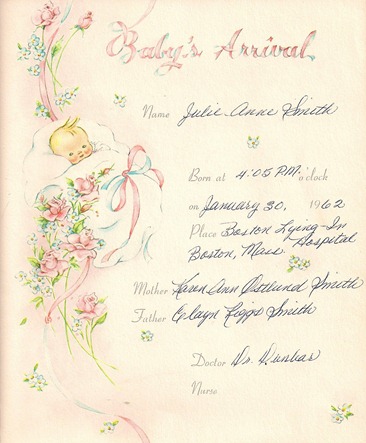 Baby's Arrival
Name Julie Anne Smith
Born at 4:05 P.M. o'clock
on January 30, 1962
Place Boston Lying-In
Hospital
Boston, Mass
Mother Karen Ann Ostlund Smith
Father Clayn Riggs Smith
Doctor Dr. Dunbar
Nurse